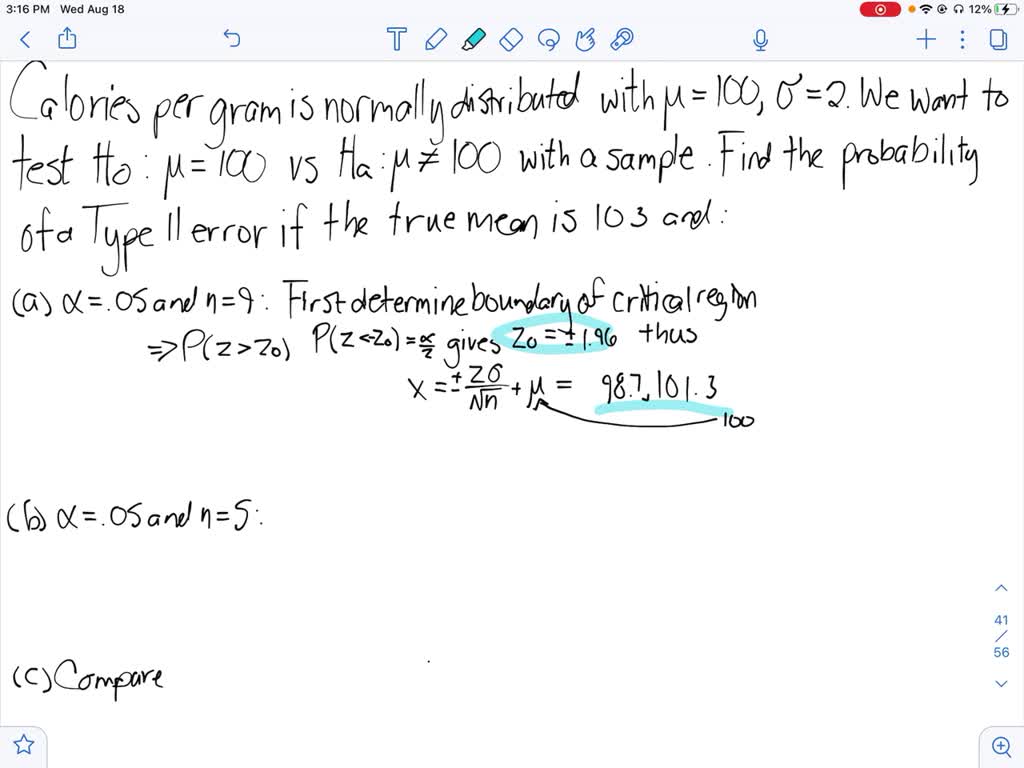 3:16 PM Wed Aug 18
12%
Calories per gram is normally distributed with μ = 100, σ = 2. We want to
test H₀ : μ = 100 vs Hₐ : μ ≠ 100 with a sample. Find the probability
of a Type II error if the true mean is 103 and :
(a) α = .05 and n = 9 : First determine boundary of critical region
⇒ P(Z > Z₀) P(Z < -Z₀) = α/2 gives Z₀ = ± 1.96 thus
X = ± Zσ/√n + μ = 98.7, 101.3
100
(b) α = .05 and n = 5 :
41
/
56
(c) Compare